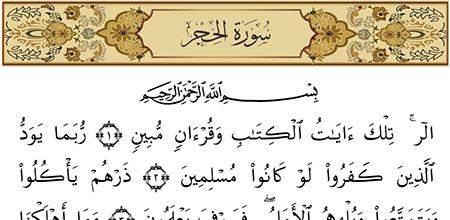 سُورَةُ الحِجْرِ
بِسْمِ ٱللَّهِ ٱلرَّحْمَٰنِ ٱلرَّحِيمِ
الٓرۚ تِلْكَ ءَايَٰتُ ٱلْكِتَٰبِ وَقُرْءَانٍ مُّبِينٍ ﴿١﴾ رُّبَمَا يَوَدُّ
ٱلَّذِينَ كَفَرُوا۟ لَوْ كَانُوا۟ مُسْلِمِينَ ﴿٢﴾ ذَرْهُمْ يَأْكُلُوا۟